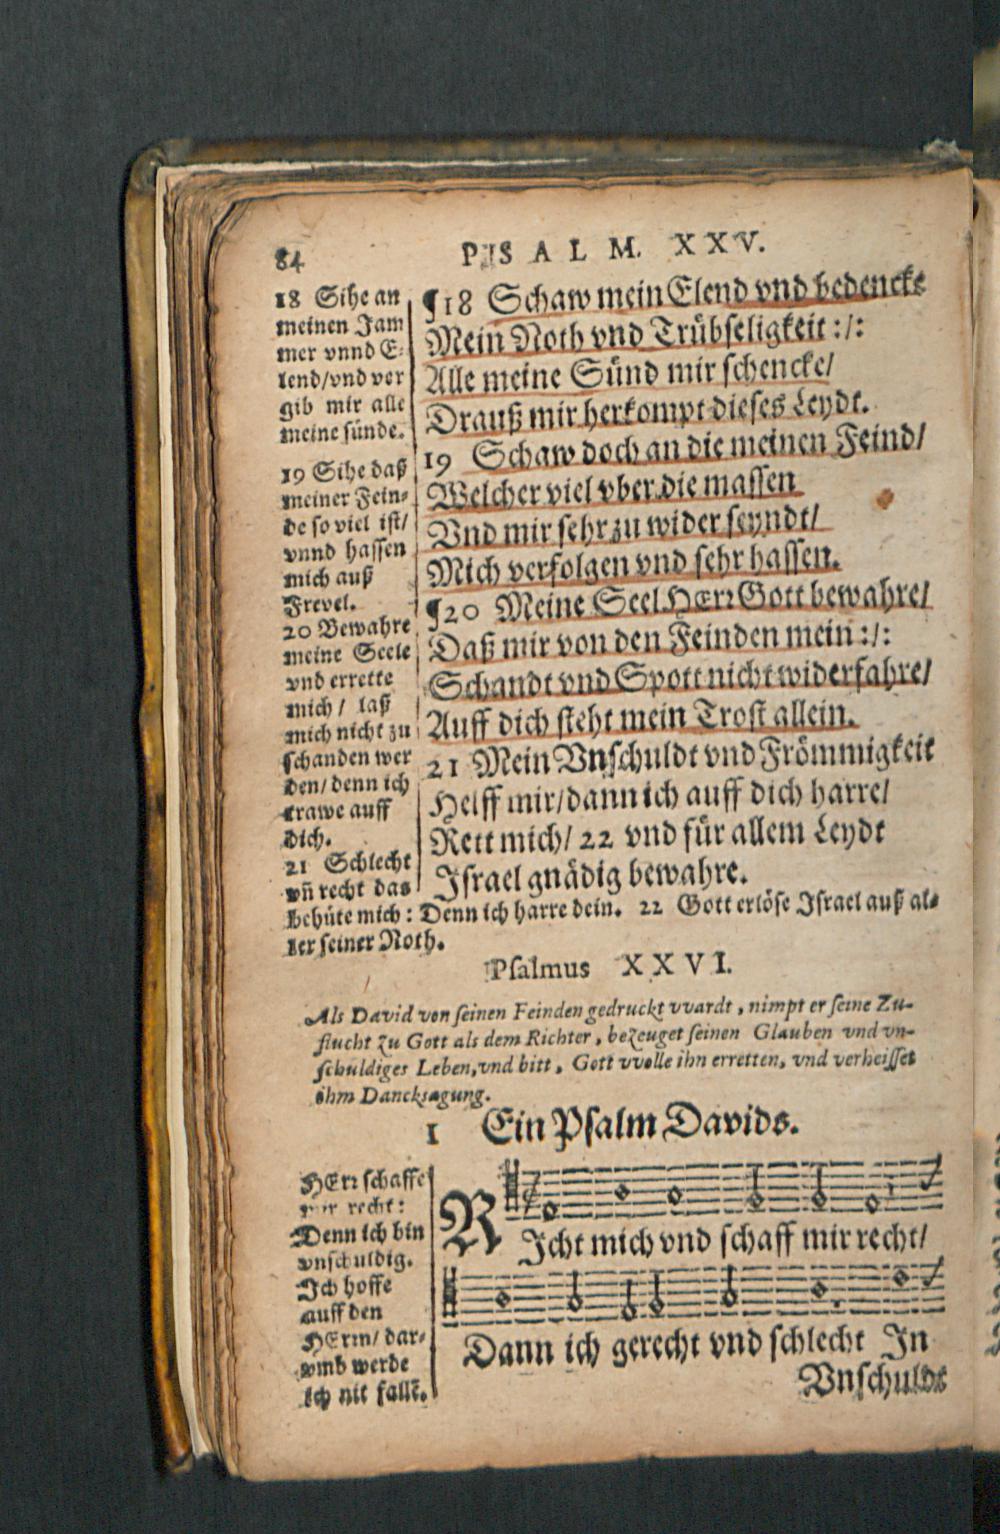 84
PSALM. XXV.
18 Sihe an
meinen Jam
mer vnnd E-
lend/vnd ver
gib mir alle
meine sünde.
19 Sihe daß
meiner Fein-
de so viel ist/
vnnd hassen
mich auß
Frevel.
20 Bewahre
meine Seele
vnd errette
mich / laß
mich nicht zu
schanden wer
den/denn ich
trawe auff
dich.
21 Schlecht
vñ recht das
behüte mich: Denn ich harre dein. 22 Gott erlöse Israel auß al-
ler seiner Noth.
¶18 Schaw mein Elend vnd bedencke
Mein Noth vnd Trübseligkeit :/:
Alle meine Sünd mir schencke/
Drauß mir herkompt dieses Leydt.
19 Schaw doch an die meinen Feind/
Welcher viel vber die massen
Vnd mir sehr zu wider seyndt/
Mich verfolgen vnd sehr hassen.
¶20 Meine Seel HErr Gott bewahre/
Daß mir von den Feinden mein :/:
Schandt vnd Spott nicht widerfahre/
Auff dich steht mein Trost allein.
21 Mein Vnschuldt vnd Frömmigkeit
Helff mir/dann ich auff dich harre/
Rett mich/ 22 vnd für allem Leydt
Israel gnädig bewahre.
Psalmus XXVI.
Als David von seinen Feinden gedruckt vvardt, nimpt er seine Zu-
flucht zu Gott als dem Richter, bezeuget seinen Glauben vnd vn-
schuldiges Leben, vnd bitt, Gott vvolle ihn erretten, vnd verheisset
ihm Dancksagung.
1 Ein Psalm Davids.
HErr schaffe
mir recht:
Denn ich bin
vnschuldig.
Ich hoffe
auff den
HErrn/ dar-
vmb werde
ich nit fallē.
RIcht mich vnd schaff mir recht/
Dann ich gerecht vnd schlecht In
Vnschuldt